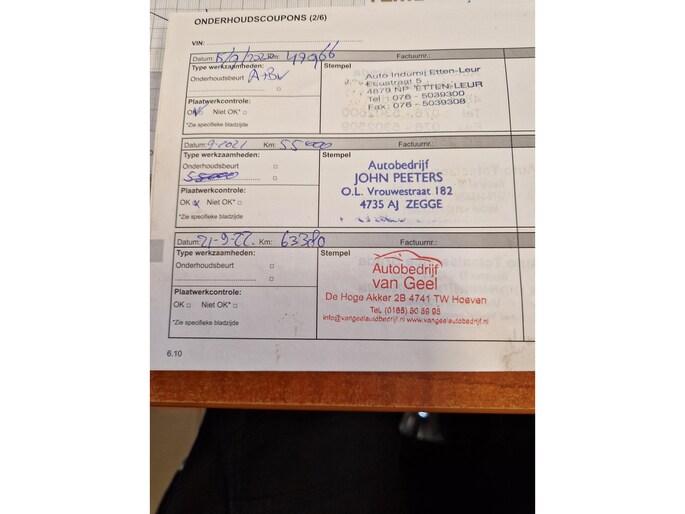 ONDERHOUDSCOUPONS (2/6)
VIN:
Datum: Km: 47966 Factuurnr.:
Type werkzaamheden:
Onderhoudsbeurt A+BV
Stempel
Auto Indumij Etten-Leur
4879 NP ETTEN-LEUR
Tel : 076 - 5039300
Fax: 076 - 5039308
Plaatwerkcontrole:
OK Niet OK*
*Zie specifieke bladzijde
Datum: 9-2021 Km: 55000 Factuurnr.:
Type werkzaamheden:
Onderhoudsbeurt
55000
Stempel
Autobedrijf
JOHN PEETERS
O.L. Vrouwestraat 182
4735 AJ ZEGGE
Plaatwerkcontrole:
OK x Niet OK*
*Zie specifieke bladzijde
Datum: 21-9-22. Km: 63380 Factuurnr.:
Type werkzaamheden:
Onderhoudsbeurt
Stempel
Autobedrijf
van Geel
De Hoge Akker 2B 4741 TW Hoeven
Tel. (0165) 50 59 95
info@vangeelautobedrijf.nl www.vangeelautobedrijf.nl
Plaatwerkcontrole:
OK Niet OK*
*Zie specifieke bladzijde
6.10